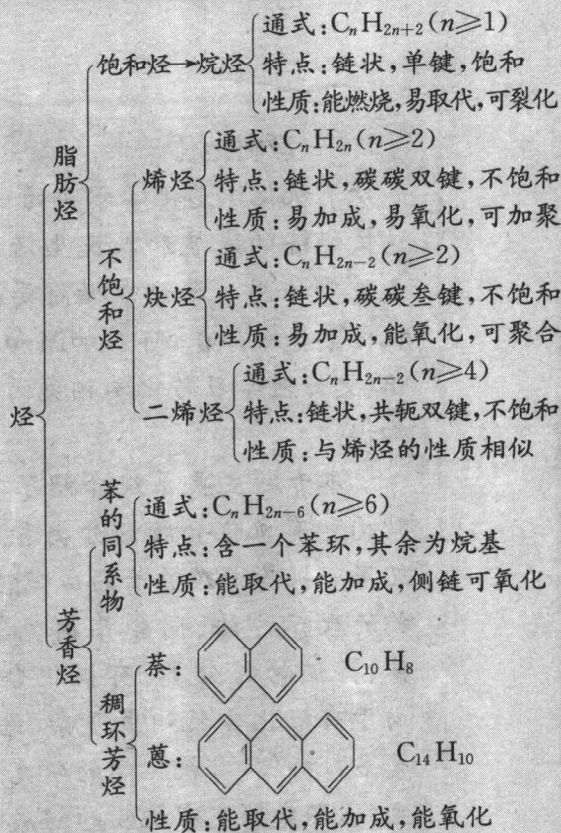 烃
脂肪烃
饱和烃→烷烃
通式:CₙH₂ₙ₊₂(n≥1)
特点:链状,单键,饱和
性质:能燃烧,易取代,可裂化
不饱和烃
烯烃
通式:CₙH₂ₙ(n≥2)
特点:链状,碳碳双键,不饱和
性质:易加成,易氧化,可加聚
炔烃
通式:CₙH₂ₙ₋₂(n≥2)
特点:链状,碳碳叁键,不饱和
性质:易加成,能氧化,可聚合
二烯烃
通式:CₙH₂ₙ₋₂(n≥4)
特点:链状,共轭双键,不饱和
性质:与烯烃的性质相似
芳香烃
苯的同系物
通式:CₙH₂ₙ₋₆(n≥6)
特点:含一个苯环,其余为烷基
性质:能取代,能加成,侧链可氧化
稠环芳烃
萘: C₁₀H₈
蒽: C₁₄H₁₀
性质:能取代,能加成,能氧化